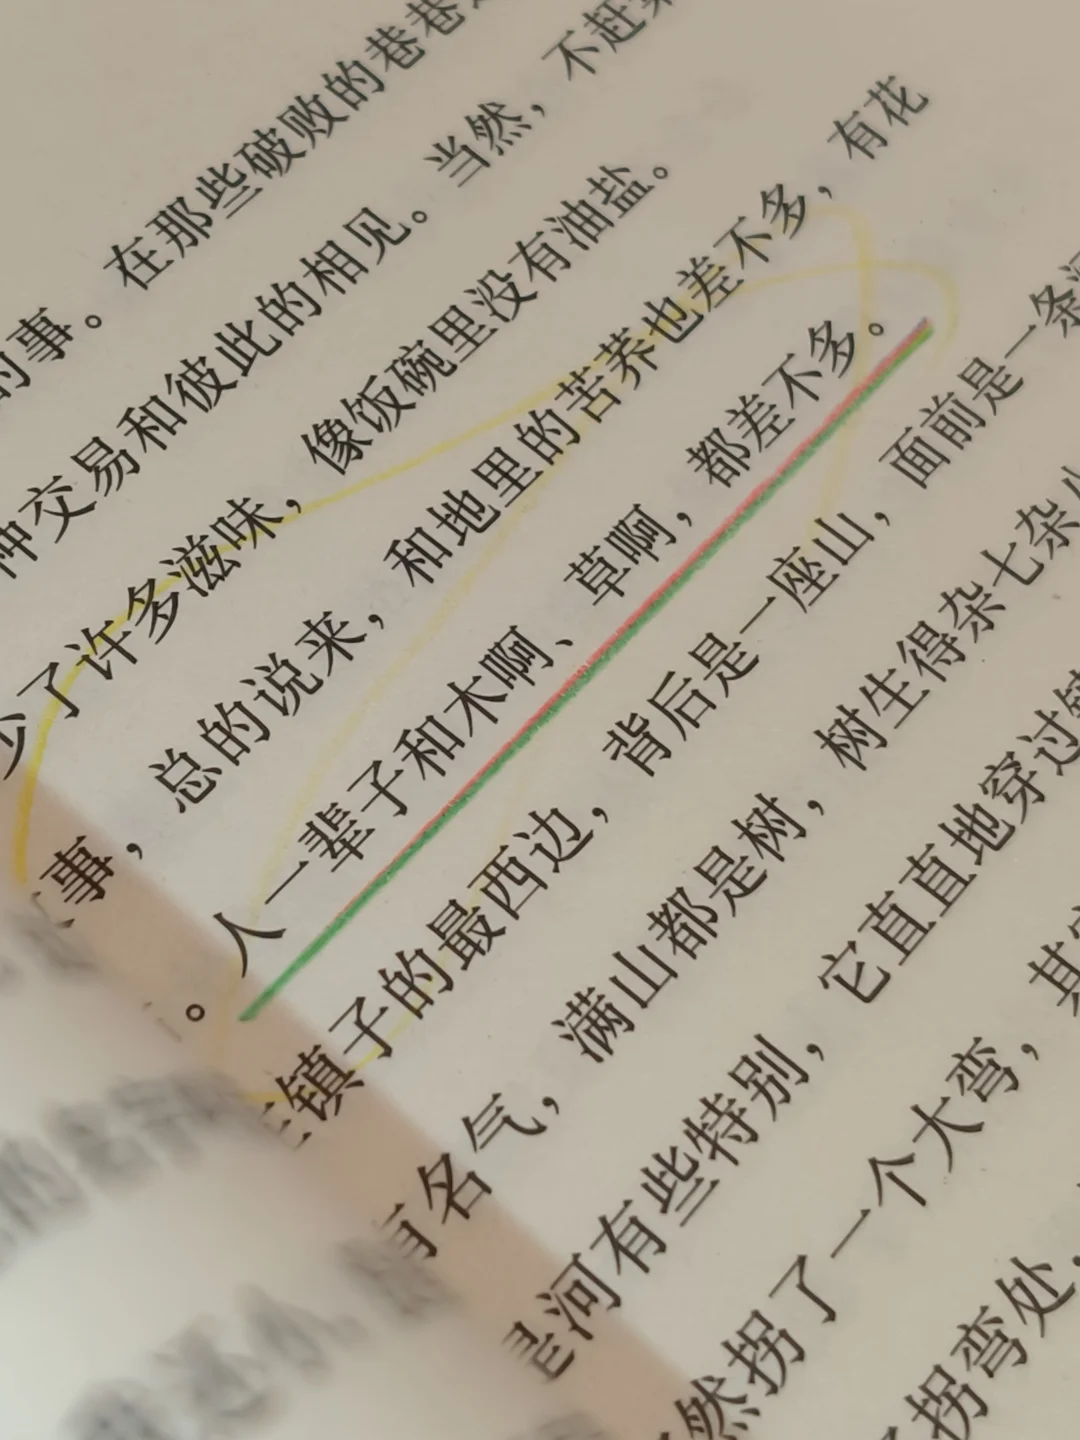 的事。在那些破败的巷巷
种交易和彼此的相见。当然，不赶
少了许多滋味，像饭碗里没有油盐。
事，总的说来，和地里的苦荞也差不多，有花
。人一辈子和木啊、草啊，都差不多。
镇子的最西边，背后是一座山，面前是一条
有名气，满山都是树，树生得杂七杂八
是河有些特别，它直直地穿过镇
然拐了一个大弯，其实
拐弯处，